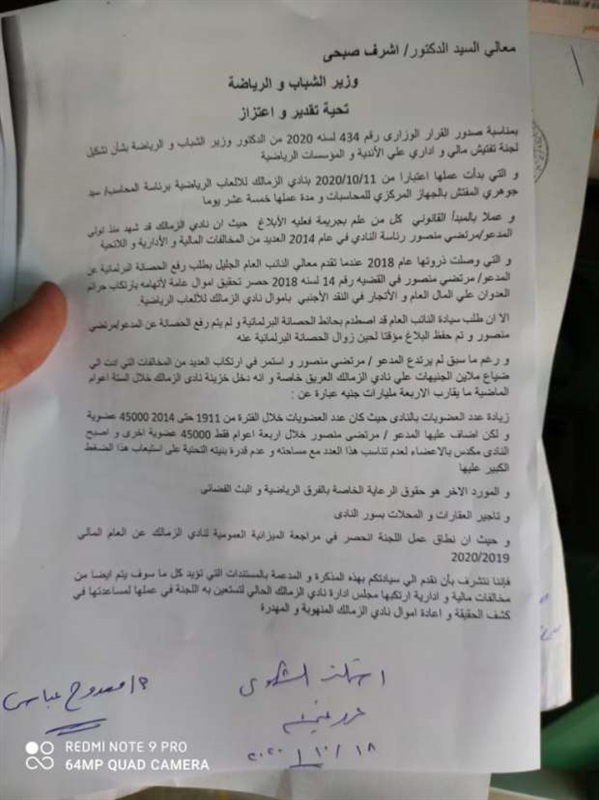 معالي السيد الدكتور/ اشرف صبحى
وزير الشباب و الرياضة
تحية تقدير و اعتزاز
بمناسبة صدور القرار الوزارى رقم 434 لسنه 2020 من الدكتور وزير الشباب و الرياضة بشأن تشكيل
لجنة تفتيش مالي و اداري علي الأندية و المؤسسات الرياضية
و التي بدأت عملها اعتبارا من 2020/10/11 بنادي الزمالك للالعاب الرياضية برئاسة المحاسب/ سيد
جوهري المفتش بالجهاز المركزي للمحاسبات و مدة عملها خمسة عشر يوما
و عملا بالمبدأ القانوني كل من علم بجريمة فعليه الأبلاغ حيث ان نادي الزمالك قد شهد منذ تولي
المدعو/مرتضي منصور رئاسة النادي في عام 2014 العديد من المخالفات المالية و الأدارية و اللائحية
و التي وصلت ذروتها عام 2018 عندما تقدم معالي النائب العام الجليل بطلب رفع الحصانة البرلمانية عن
المدعو/ مرتضي منصور في القضيه رقم 14 لسنه 2018 حصر تحقيق اموال عامة لأتهامه بارتكاب جرائم
العدوان علي المال العام و الأتجار في النقد الأجنبي باموال نادي الزمالك للألعاب الرياضية
الا ان طلب سيادة النائب العام قد اصطدم بحائط الحصانة البرلمانية و لم يتم رفع الحصانة عن المدعو/مرتضي
منصور و تم حفظ البلاغ مؤقتا لحين زوال الحصانة البرلمانية عنه
و رغم ما سبق لم يرتدع المدعو / مرتضي منصور و استمر في ارتكاب العديد من المخالفات التي ادت الي
ضياع ملاين الجنيهات علي نادي الزمالك العريق خاصة و انه دخل خزينة نادى الزمالك خلال الستة اعوام
الماضية ما يقارب الاربعة مليارات جنيه عبارة عن :
زيادة عدد العضويات بالنادى حيث كان عدد العضويات خلال الفترة من 1911 حتى 2014 45000 عضوية
و لكن اضاف عليها المدعو / مرتضي منصور خلال اربعة اعوام فقط 45000 عضوية اخرى و اصبح
النادى مكدس بالاعضاء لعدم تناسب هذا العدد مع مساحته و عدم قدرة بنيته التحتية على استيعاب هذا الضغط
الكبير عليها
و المورد الاخر هو حقوق الرعاية الخاصة بالفرق الرياضية و البث الفضائى
و تاجير العقارات و المحلات بسور النادى
و حيث ان نطاق عمل اللجنة انحصر في مراجعة الميزانية العمومية لنادي الزمالك عن العام المالي
2020/2019
فإننا نتشرف بأن نقدم الي سيادتكم بهذه المذكرة و المدعمة بالمستندات التي تؤيد كل ما سوف يتم ايضا من
مخالفات مالية و ادارية ارتكبها مجلس ادارة نادي الزمالك الحالي لتستعين به اللجنة في عملها لمساعدتها في
كشف الحقيقة و اعادة اموال نادي الزمالك المنهوبة و المهدرة
استلمت الشكوى
م/ ممدوح عباس
٢٠٢٠/١٠/١٨
REDMI NOTE 9 PRO
64MP QUAD CAMERA